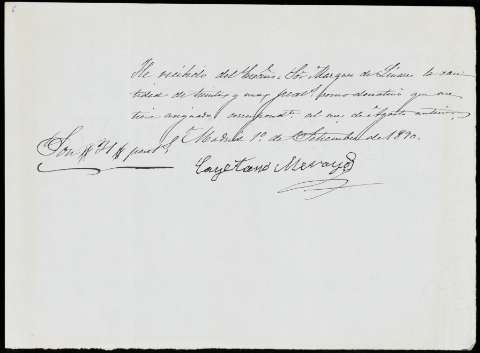 He recibido del Excmo. Sor. Marques de Linares la can-
tidad de veinte y una pesets. como donativo que me
tiene asignado correspondte. al mes de Agosto anterior.
Madrid 1º de Setiembre de 1890.
Son #21# pesets.
Cayetano Meroyo